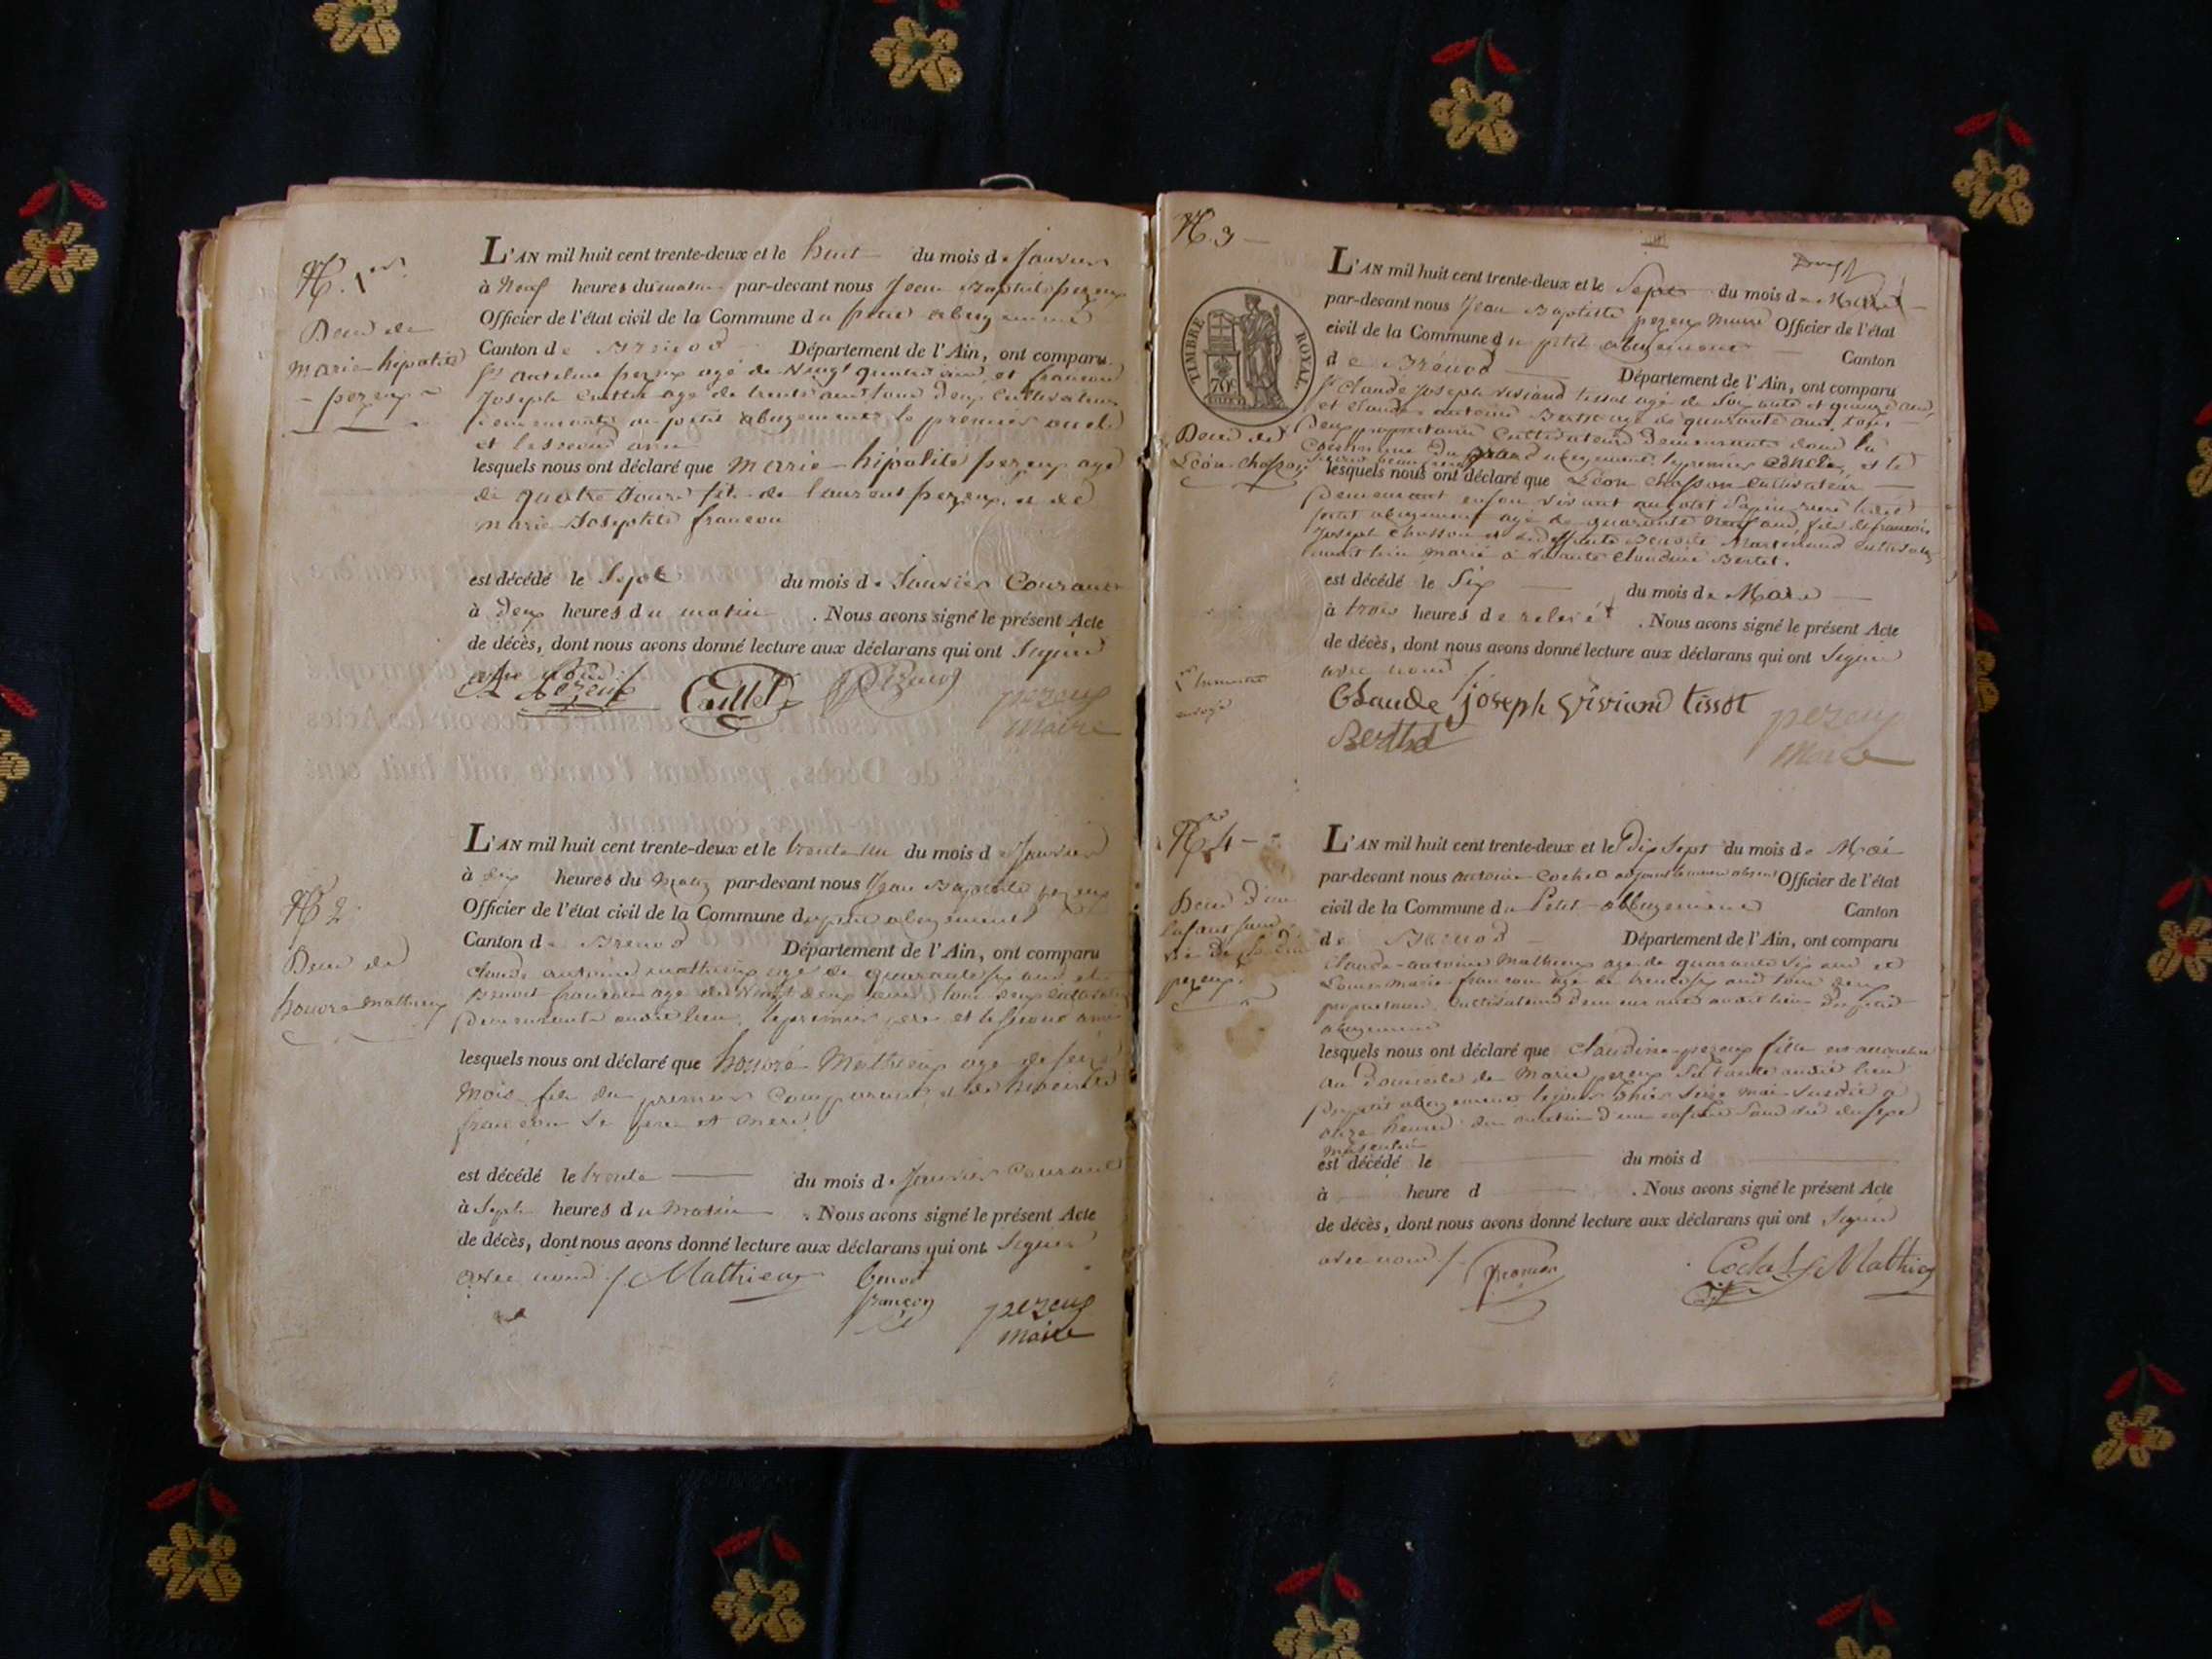 N. 1er
Décès de
marie-hipolite
pezeux
L'AN mil huit cent trente-deux et le huit du mois de Janvier
à Neuf heures du matin par-devant nous Jean Baptiste pezeux
Officier de l'état civil de la Commune du petit abergement
Canton de Brénod Département de l'Ain, ont comparu
Srs antelme pezeux agé de Vingt quatre ans et francon
Joseph Cultet agé de trente ans tous deux Cultivateurs
demeurants au petit abergement le premier oncle
et le second ami
lesquels nous ont déclaré que marie-hipolite pezeux agé
de quatre Jours fils de laurent pezeux et de
marie Josephte francon
est décédé le Sept du mois de Janvier Courant
à deux heures du matin . Nous avons signé le présent Acte
de décès, dont nous avons donné lecture aux déclarans qui ont Signé
avec nous
A pezeux Cultet pezeux
maire
N 2
Décès de
honoré mathieux
L'AN mil huit cent trente-deux et le trente un du mois de Janvier
à dix heures du Matin par-devant nous Jean Baptiste pezeux
Officier de l'état civil de la Commune du petit abergement
Canton de Brénod Département de l'Ain, ont comparu
claude antoine mathieux agé de quarante six ans et
Benoit francon agé de Vingt deux ans tous deux Cultivateurs
demeurants audit lieu, le premier père et le second ami
lesquels nous ont déclaré que honoré Mathieux agé de seize
mois fils du premier Comparant et de
francon Se père et mère
est décédé le trente du mois de Janvier Courant
à Sept heures du Matin . Nous avons signé le présent Acte
de décès, dont nous avons donné lecture aux déclarans qui ont Signé
avec nous / Mathieux benoit
françon pezeux
maire
N. 3
TIMBRE ROYAL
70c
Décès de
Léon Chosson
L'AN mil huit cent trente-deux et le Sept du mois de Mars
par-devant nous Jean Baptiste pezeux Maire Officier de l'état
civil de la Commune du petit abergement Canton
de Brénod Département de l'Ain, ont comparu
Sr Claude Joseph Viviand tissot agé de Soixante et quinze ans,
et Claude antoine Berthet agé de quarante ans, tous
deux propriétaires Cultivateurs demeurants dans la
Commune du grand abergement, le premier oncle, et le
second beau frère
lesquels nous ont déclaré que Léon Chosson Cultivateur
demeurant en son vivant
petit abergement agé de quarante Neuf ans, fils de francois
Joseph Chosson et de deffunte Benoite
marié à vivante Claudine Bertet.
est décédé le Six du mois de Mars
à trois heures de relevé . Nous avons signé le présent Acte
de décès, dont nous avons donné lecture aux déclarans qui ont Signé
avec nous
Claude joseph Viviand tissot pezeux
Berthet maire
N. 4
Décès d'un
Enfant Sans
vie de Claudine
pezeux
L'AN mil huit cent trente-deux et le Dix Sept du mois de Mai
par-devant nous antoine Cochet adjoint le maire absent Officier de l'état
civil de la Commune du Petit abergement Canton
de Brénod Département de l'Ain, ont comparu
Claude-antoine Mathieux agé de quarante Six ans et
Louis-marie francon agé de trente six ans tous deux
propriétaires Cultivateurs demeurants audit lieu du petit
abergement
lesquels nous ont déclaré que Claudine pezeux fille est accouchée
au Domicile de Marie pezeux Sa tante audit lieu
du petit abergement le jour d'hier Seize mai Susdit à
onze heures du matin d'un enfant Sans vie du Sexe
masculin
est décédé le du mois d
à heure d . Nous avons signé le présent Acte
de décès, dont nous avons donné lecture aux déclarans qui ont Signé
avec nous / francon Cochet Mathieux